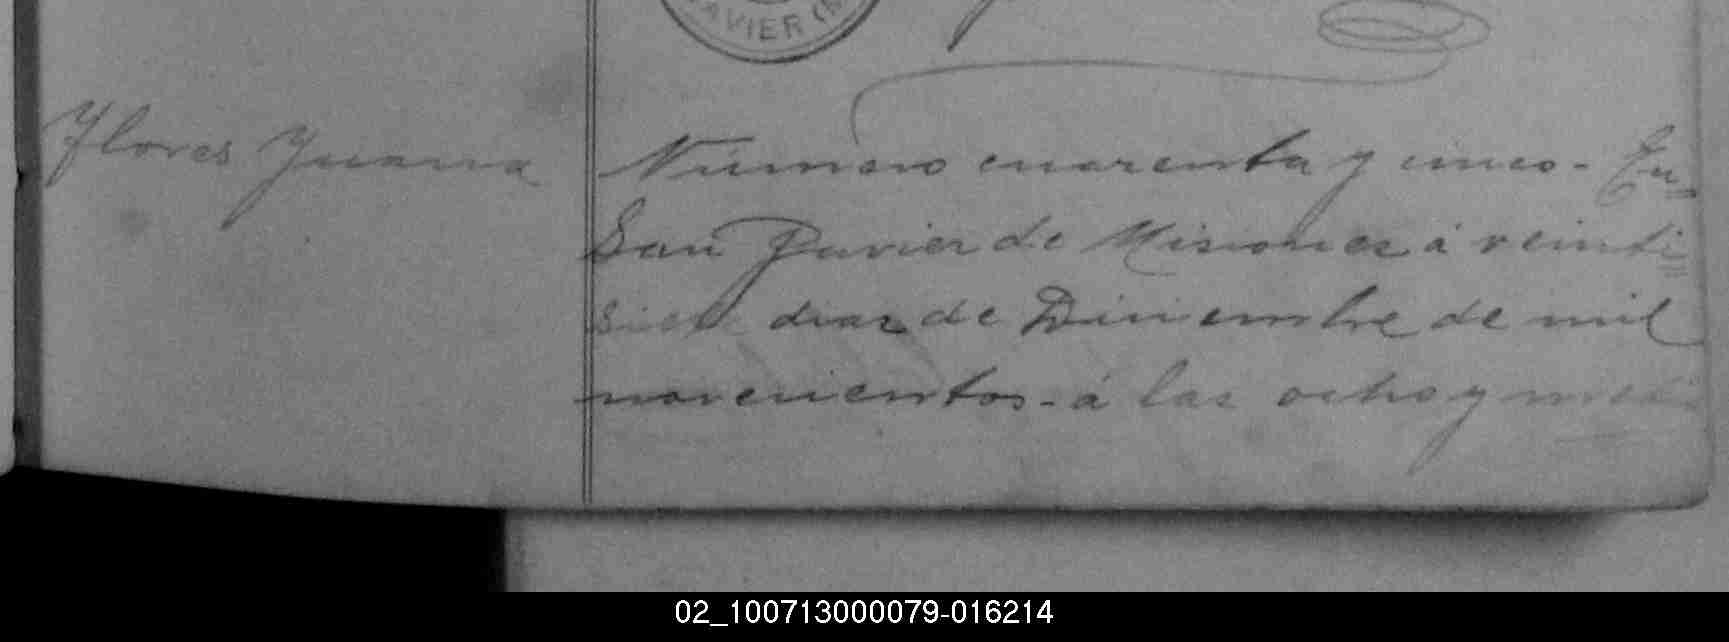 AVIER (M
Flores Juana
Número cuarenta y cinco - En
San Javier de Misiones á veinti
siete dias de Diciembre de mil
novecientos - á las ocho y medi
02_100713000079-016214